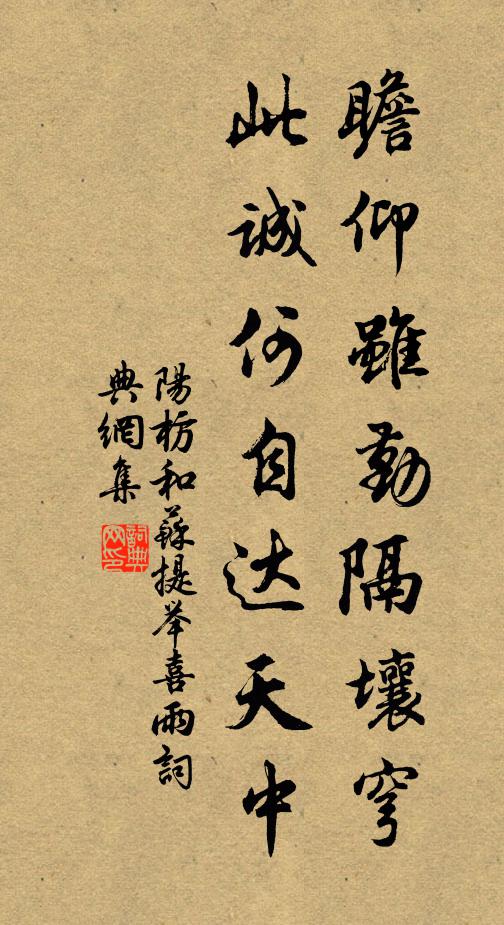 瞻仰雖勤隔壤穹
此誠何自达天中
陽枋和蘇提举喜雨詞
典網集
詞典
网印